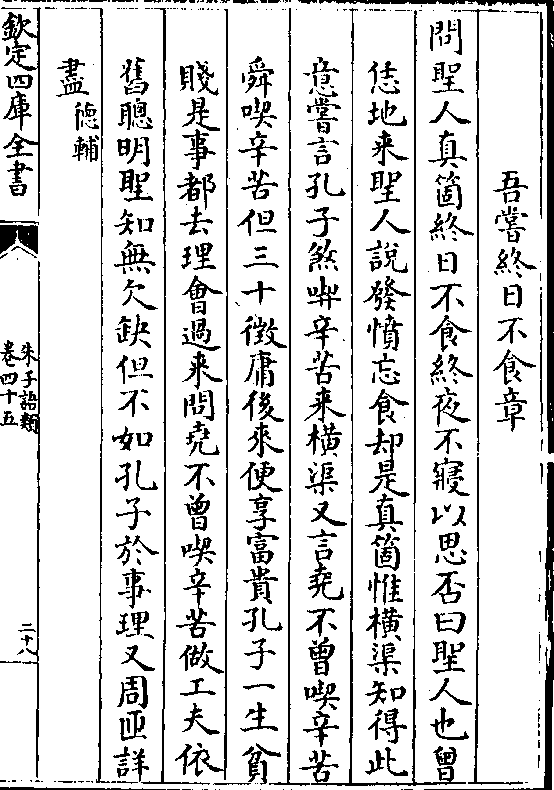 吾嘗終日不食章
問聖人真箇終日不食終夜不寢以思否曰聖人也曾
恁地来聖人說發憤忘食却是真箇惟横渠知得此
意嘗言孔子煞喫辛苦来横渠又言堯不曾喫辛苦
舜喫辛苦但三十徴庸後來便享富貴孔子一生貧
賤是事都去理會過来問堯不曾喫辛苦做工夫依
舊聰明聖知無欠缺但不如孔子於事理又周匝詳
盡德輔
欽定四庫全書
朱子語類
卷四十五
二十八